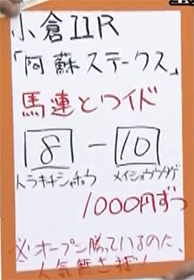 小倉11R
「阿蘇ステークス」
馬連とワイド
8 - 10
トラキチシャチョウ メイショウウタゲ
1000円ずつ
※オープン勝っているのに、
人気無さすぎ!